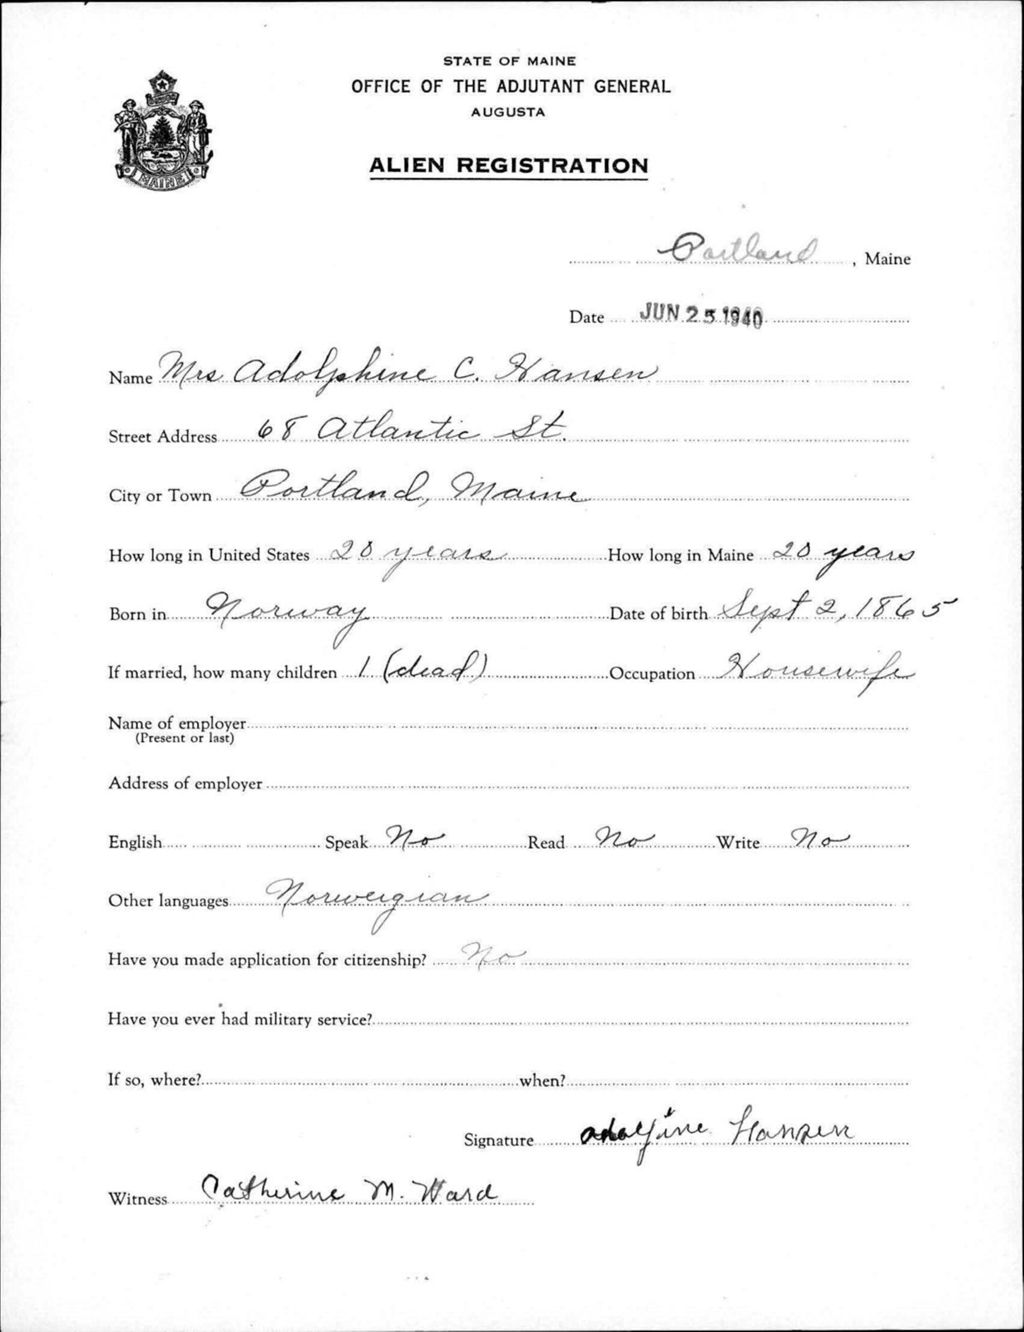 STATE OF MAINE
OFFICE OF THE ADJUTANT GENERAL
AUGUSTA
ALIEN REGISTRATION
MAINE
Portland, Maine
Date JUN 25 1940
Name Mrs Adolphine C. Hansen
Street Address 68 Atlantic St.
City or Town Portland, Maine
How long in United States 20 years How long in Maine 20 years
Born in Norway Date of birth Sept 2, 1865
If married, how many children 1 (dead) Occupation Housewife
Name of employer
(Present or last)
Address of employer
English Speak No Read No Write No
Other languages Norweigian
Have you made application for citizenship? No
Have you ever had military service?
If so, where? when?
Signature Adolfine Hansen
Witness Catherine M. Ward